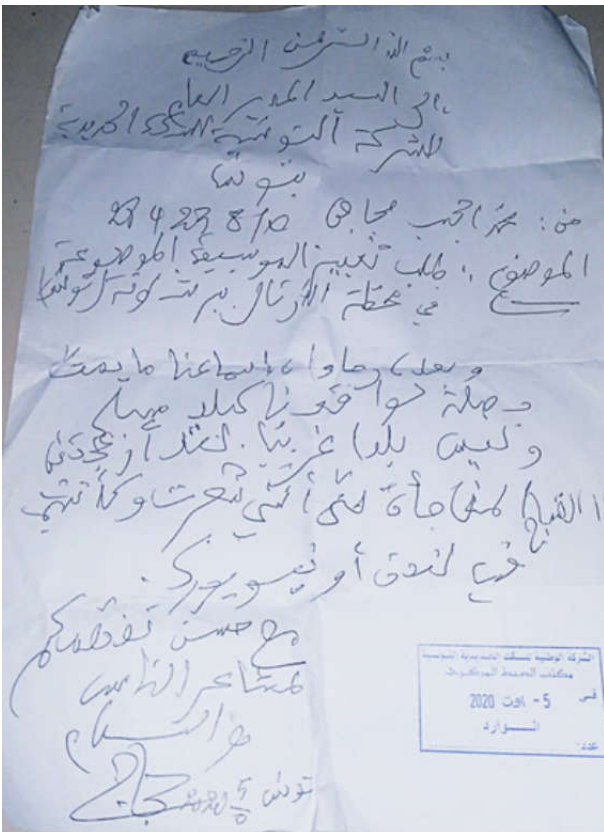 بسم الله الرحمن الرحيم
إلى السيد المدير العام
للشركة التونسية للسكك الحديدية
بتونس
من: محمد الحبيب
الموضوع: طلب تغيير الموسيقى الموضوعة
في محطة الأرتال ببرشلونة تونس
وبعد، رجاء، إسماعنا ما يمت
بصلة لواقعنا كبلد مسلم
وليس بلدا غربيا. لقد أزعجتني
المفاجأة حتى أنني شعرت وكأنني
في لندن أو نيويورك.
مع حسن تفهمكم
لمشاعر الناس
والسلام
تونس 2020
الشركة الوطنية للسكك الحديدية التونسية
مكتب الضبط المركزي
في 5 - اوت 2020
الـوارد
عدد: